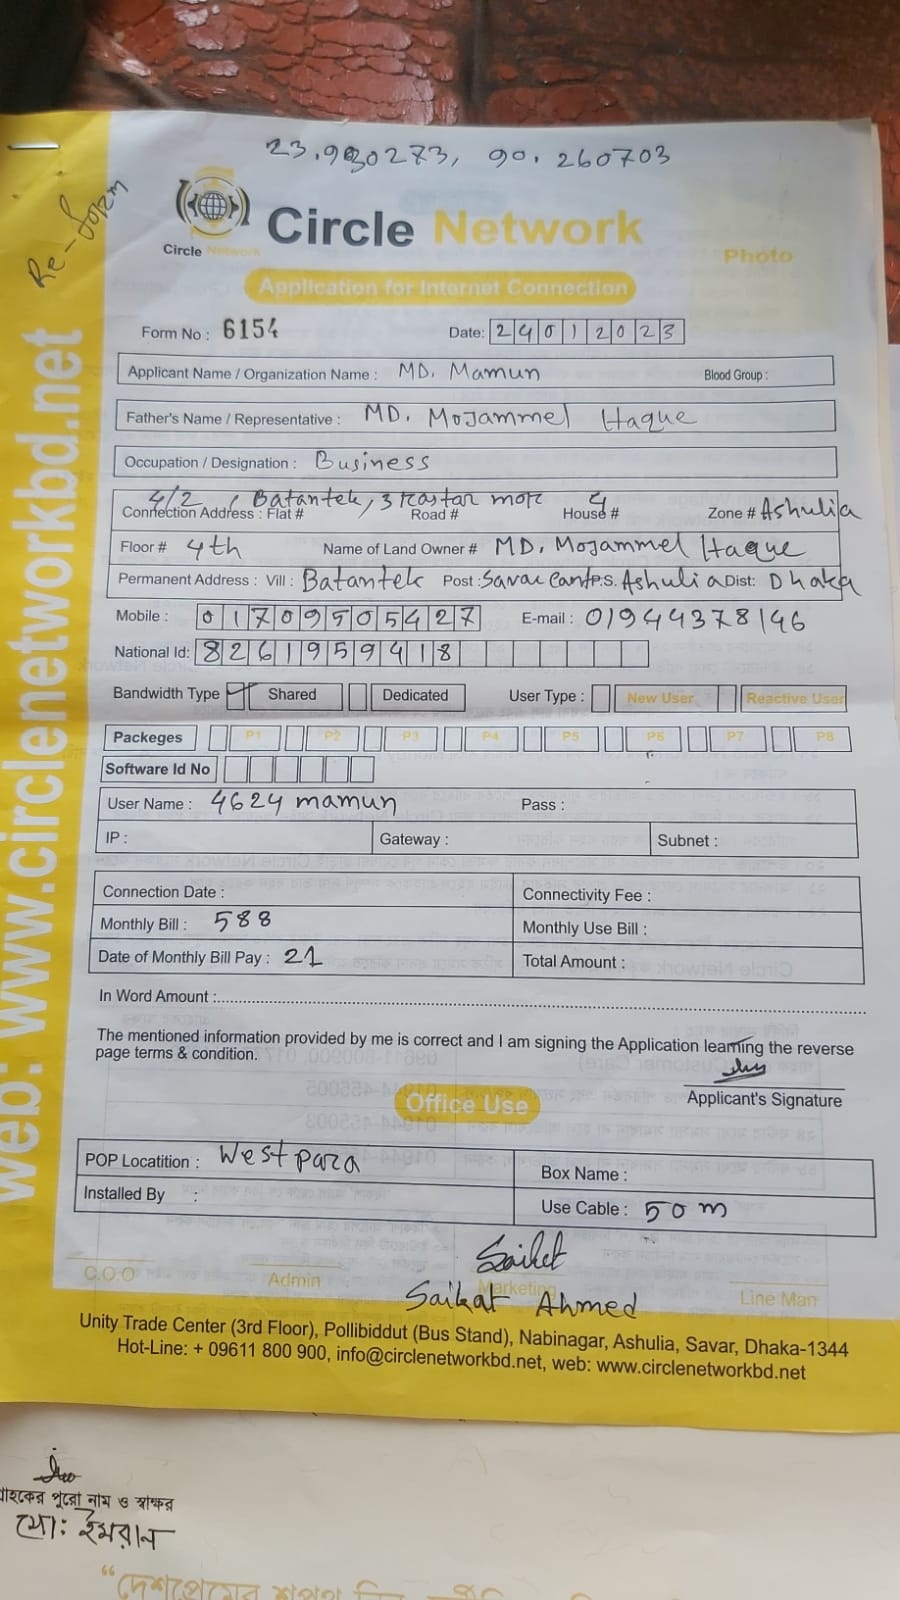 23.930273, 90.260703
Re-ফরম
Circle Network
Circle Network
Photo
Application for Internet Connection
Form No : 6154 Date: 24012023
Applicant Name / Organization Name : MD. Mamun Blood Group :
Father's Name / Representative : MD. Mojammel Haque
Occupation / Designation : Business
4/2, Batantek, 3 rastar mor 4
Connection Address : Flat # Road # House # Zone # Ashulia
Floor # 4th Name of Land Owner # MD. Mojammel Haque
Permanent Address : Vill : Batantek Post : Savar Cant P.S. Ashulia Dist: Dhaka
Mobile : 01709505427 E-mail : 01944378146
National Id: 8261959418
Bandwidth Type Shared Dedicated User Type : New User Reactive User
Packeges P1 P2 P3 P4 P5 P6 P7 P8
Software Id No
User Name : 4624 mamun Pass :
IP : Gateway : Subnet :
Connection Date : Connectivity Fee :
Monthly Bill : 588 Monthly Use Bill :
Date of Monthly Bill Pay : 21 Total Amount :
In Word Amount :
The mentioned information provided by me is correct and I am signing the Application learning the reverse
page terms & condition.
Applicant's Signature
Office Use
POP Locatition : West para Box Name :
Installed By : Use Cable : 50 m
Saikat
C.O.O Admin Marketing Line Man
Saikat Ahmed
Unity Trade Center (3rd Floor), Pollibiddut (Bus Stand), Nabinagar, Ashulia, Savar, Dhaka-1344
Hot-Line: + 09611 800 900, info@circlenetworkbd.net, web: www.circlenetworkbd.net
web: www.circlenetworkbd.net
গ্রাহকের পুরো নাম ও স্বাক্ষর
মো: ইমরান
“দেশপ্রেমের শপথ নিন